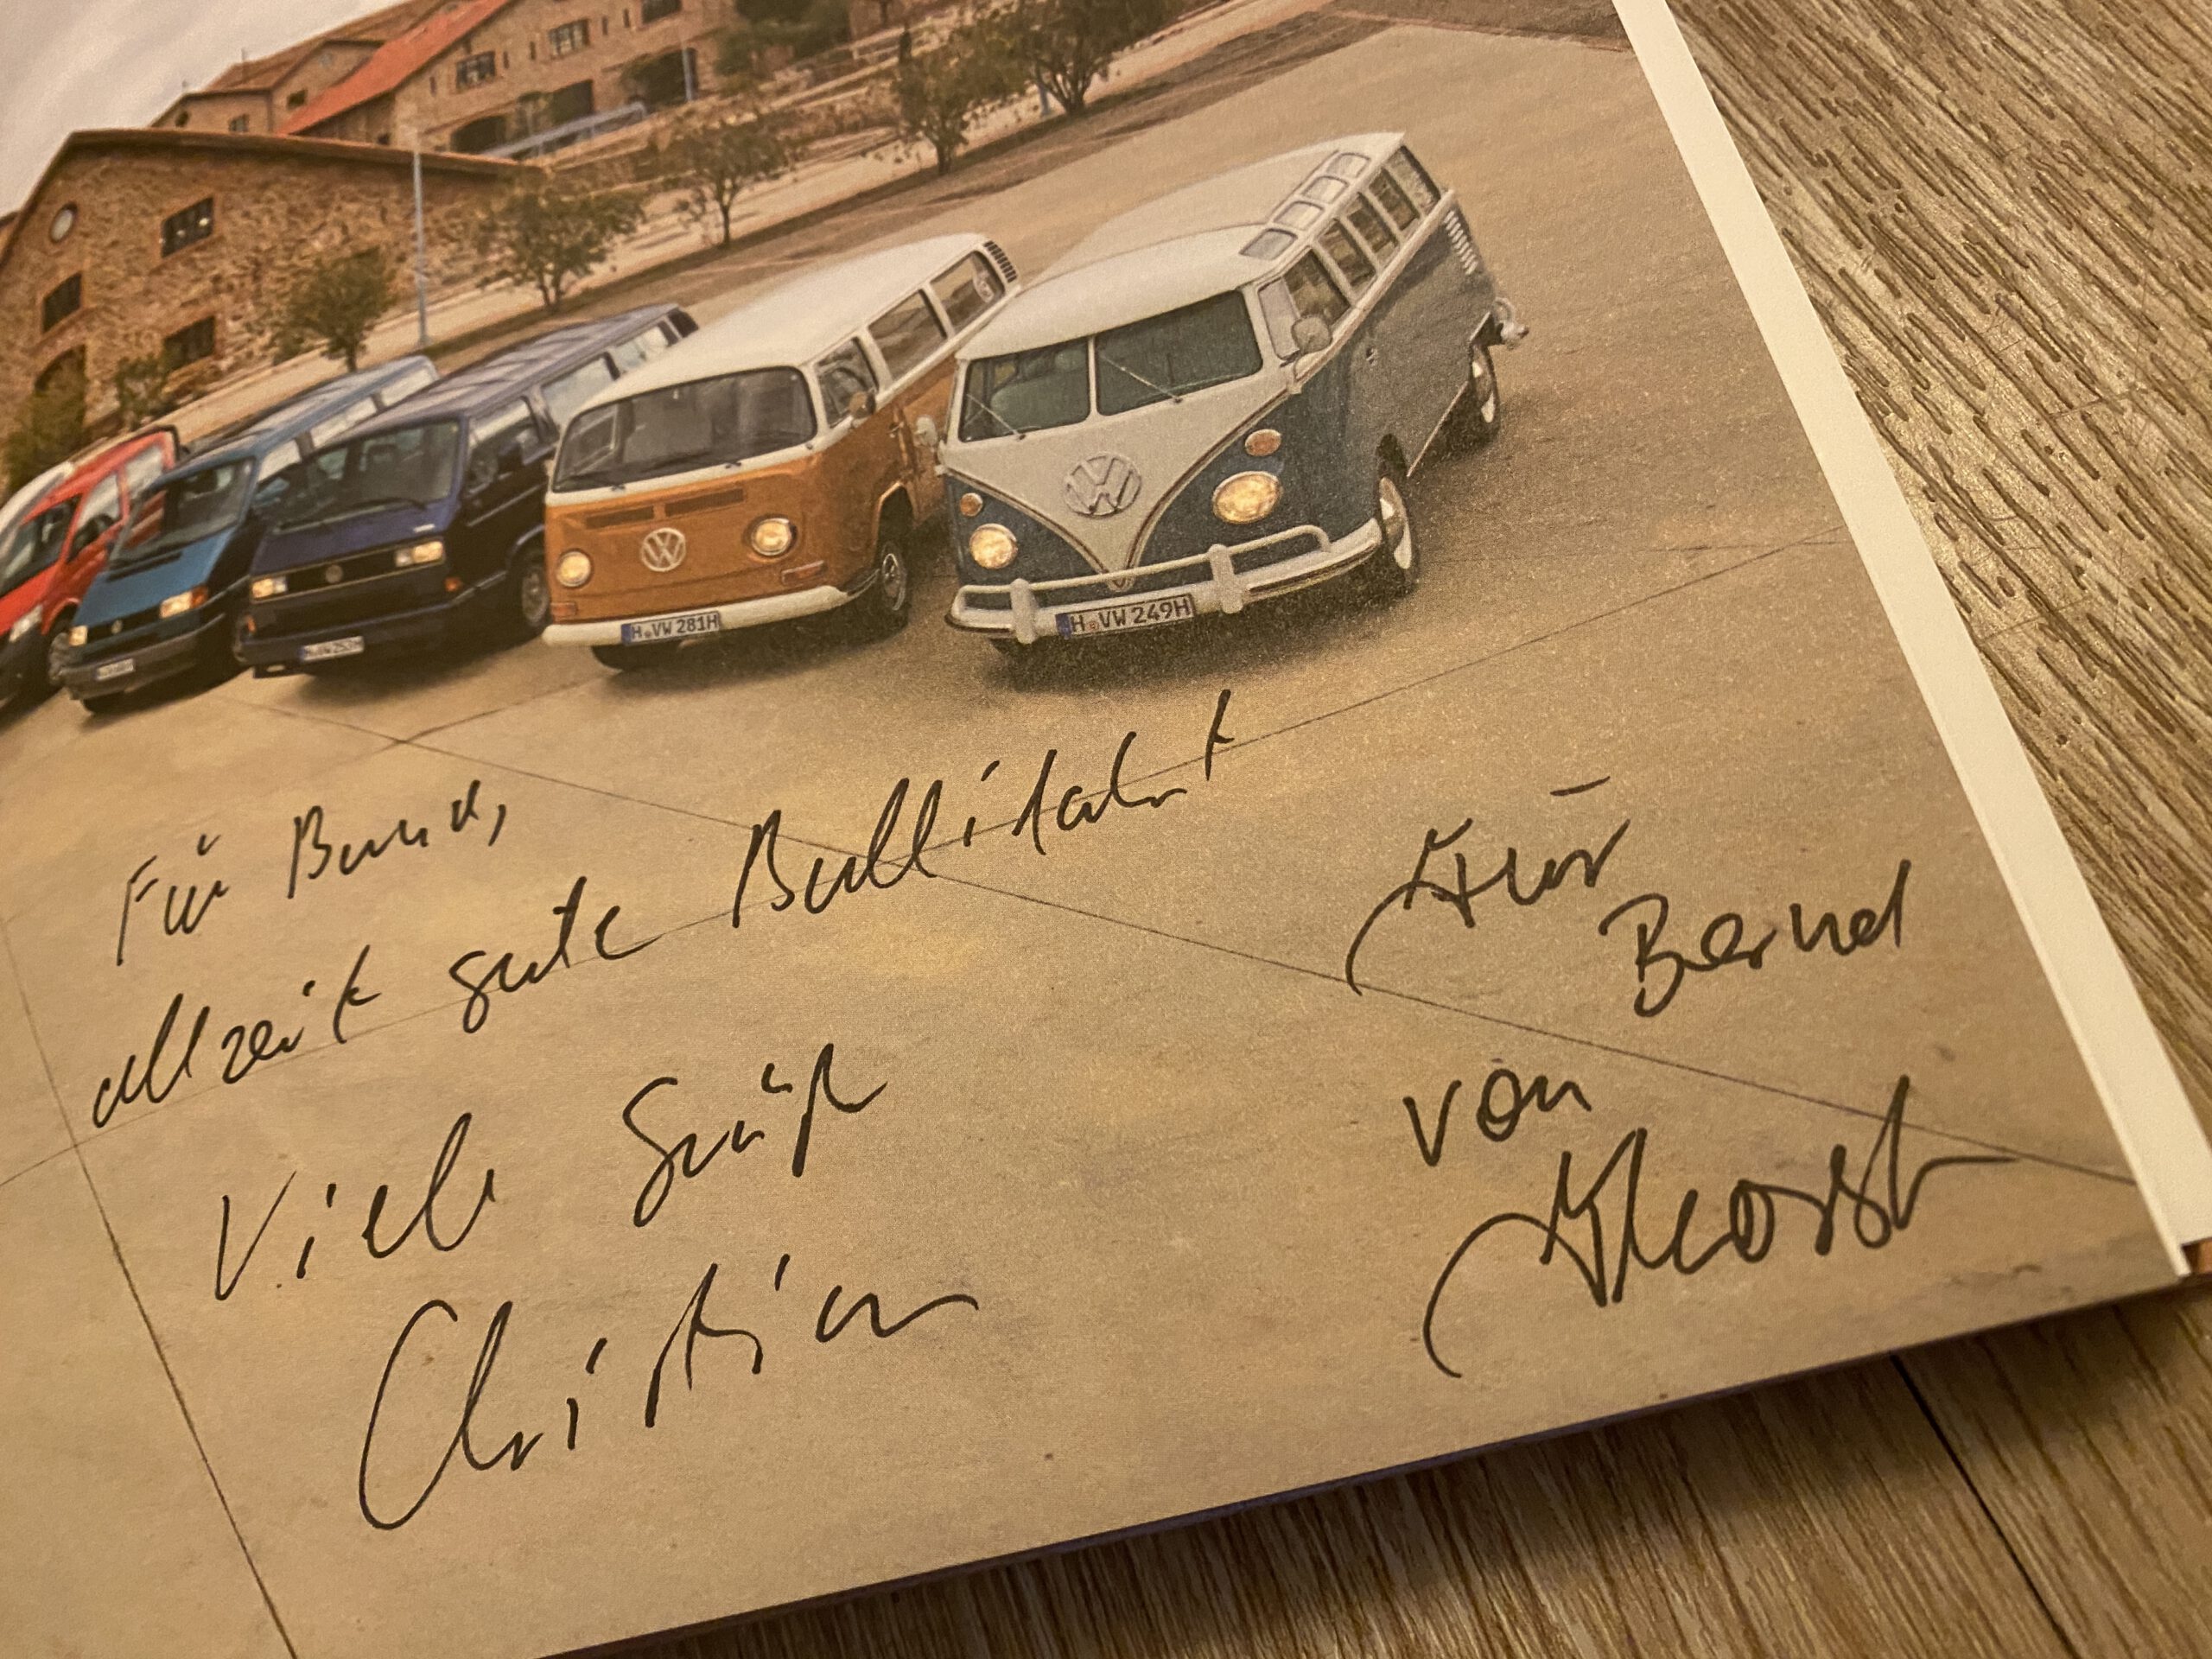 H VW 249H
H VW 281H
Für Bernd,
allzeit gute Bullifahrt
Viele Grüße
Christian
Für
Bernd
von